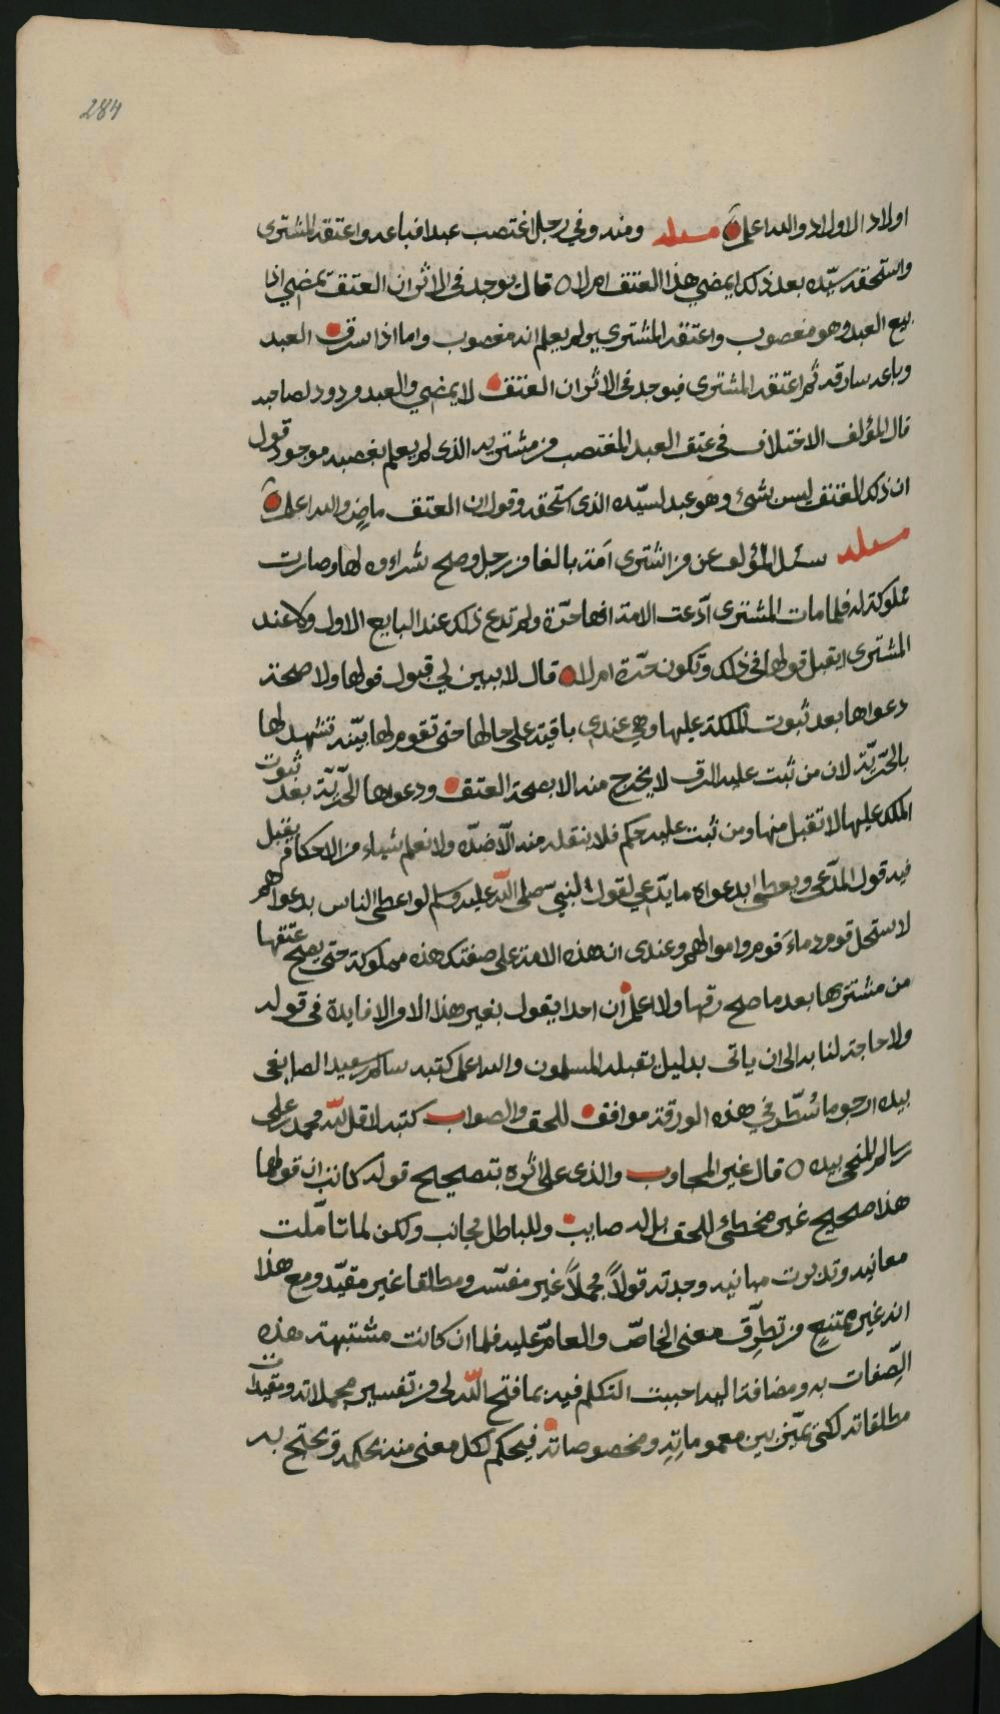 284
اولاد الاولاد والله اعلم مسئلة ومنه وفي رجل اغتصب عبدا فباعه واعتقه المشترى
واستحقه سيّده بعد ذلك ايمضي هذا العتق ام لا قال يوجد فى الاثر ان العتق يمضي اذا
بيع العبد وهو مغصوب واعتقه المشتري ولم يعلم انه مغصوب واما اذا سرق العبد
وباعه سارقه ثم اعتقه المشترى فيوجد فى الاثر ان العتق لا يمضي والعبد مردود لصاحبه
قال المؤلف الاختلاف فى عتق العبد المغتصب من مشتريه الذى لم يعلم بغصبه موجود قول
ان ذلك العتق ليس بشئ وهو عبد لسيّده الذى استحقه وقول ان العتق ماضٍ والله اعلم
مسئلة سئل المؤلف عن من اشترى أمة بالغا من رجل وصح شراوه لها وصارت
مملوكة له فلما مات المشترى ادّعت الامة انها حرّة ولم تدع ذلك عند البايع الاول ولا عند
المشترى ايقبل قولها فى ذلك وتكون حرّة ام لا قال لا يبين لي قبول قولها ولا صحة
دعواها بعد ثبوت الملكة عليها وهي عندي باقية على حالها حتى تقوم لها بيّنة تشهد لها
بالحرّيّة لان من ثبت عليه الرق لا يخرج منه الا بصحة العتق ودعواها الحرّيّة بعد ثبوت
الملك عليها لا تقبل منها ومن ثبت عليه حكم فلا ينقله منه الّا ضدّه ولا نعلم شيئاء من الاحكام يقبل
فيه قول المدّعى ويعطى بدعواه ما يدّعي لقول النبي صلى الله عليه وسلم لو اعطى الناس بدعواهم
لاستحل قوم دماءَ قوم واموالهم وعندى ان هذه الامة على صفتك هذه مملوكة حتى يصح عتقها
من مشتريها بعد ما صح رقها ولا اعلم أن احدا يقول بغير هذا الا ولا فايدة فى قوله
ولا حاجة لنا به الى ان ياتى بدليل تقبله المسلمون والله اعلم كتبه سالم بن سعيد الصايغى
بيده ارجو ما سُطّر في هذه الورقة موافق للحق والصواب كتبه لاقل لله محمد بن على
بن سالم المنحي بيده قال غير المجاوب والذى على اثره بتصحيح قوله كاتب ان قولها
هذا صحيح غير مخطئ للحق بل له صايب وللباطل مجانب ولكن لما تاملت
معانيه وتدبرت مبانيه وجدته قولاً مجملاً غير مفسّر ومطلقا غير مقيّد ومع هذا
انه غير ممتنعٍ من تطرّق معنى الخاصّ والعامّ عليه فلما ان كانت مشتبهة هذه
الصّفات به ومضافة اليه احببت التكلم فيه بما فتح الله لى من تفسير مجملاته وتقييدات
مطلقاته لكى يميّز بين معموماته ومخصوصاته فيحكم لكل معنى منه بحكمه ويحتج به